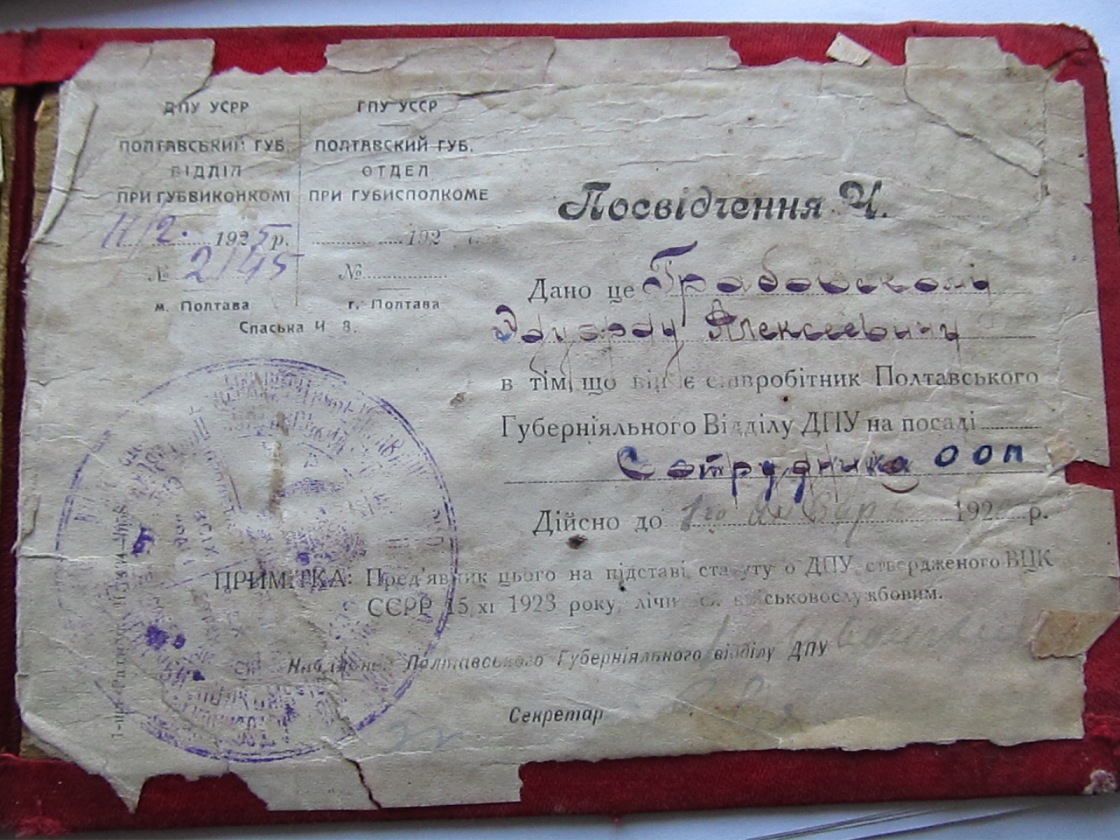 ДПУ УСРР
ПОЛТАВСЬКИЙ ГУБ.
ВІДДІЛ
ПРИ ГУБВИКОНКОМІ
11/2. 1925р.
№ 2145
м. Полтава
ГПУ УССР
ПОЛТАВСКИЙ ГУБ.
ОТДЕЛ
ПРИ ГУБИСПОЛКОМЕ
192
№
г. Полтава
Спаська Ч 8.
Посвідчення Ч.
Дано це Грабовскому
Эдуарду Алексеевичу
в тім, що він є співробітник Полтавського
Губерніяльного Відділу ДПУ на посаді
Сотрудника ООП
Дійсно до 1го января 192 р.
ПРИМІТКА: Пред'явник цього на підставі статуту о ДПУ, ствердженого ВЦК
СЄРР 15/XI 1923 року, лічиться військовослужбовим.
Полтавського Губерніяльного відділу ДПУ
Секретар